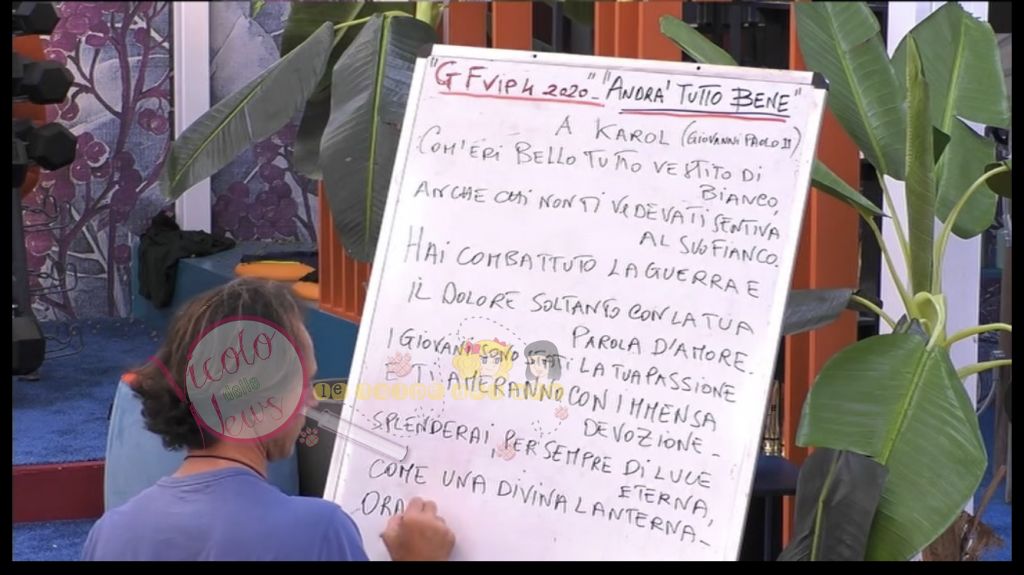 "GFVIP4 2020"_"ANDRA' TUTTO BENE"
A KAROL (GIOVANNI PAOLO II)
COM'ERI BELLO TUTTO VESTITO DI
BIANCO,
ANCHE CHI NON TI VEDEVA TI SENTIVA
AL SUO FIANCO.
HAI COMBATTUTO LA GUERRA E
IL DOLORE SOLTANTO CON LA TUA
PAROLA D'AMORE.
I GIOVANI SONO STATI LA TUA PASSIONE
E TI AMERANNO CON IMMENSA
DEVOZIONE_
SPLENDERAI, PER SEMPRE DI LUCE
ETERNA,
COME UNA DIVINA LANTERNA_
ORA
Vicolo
delle
News